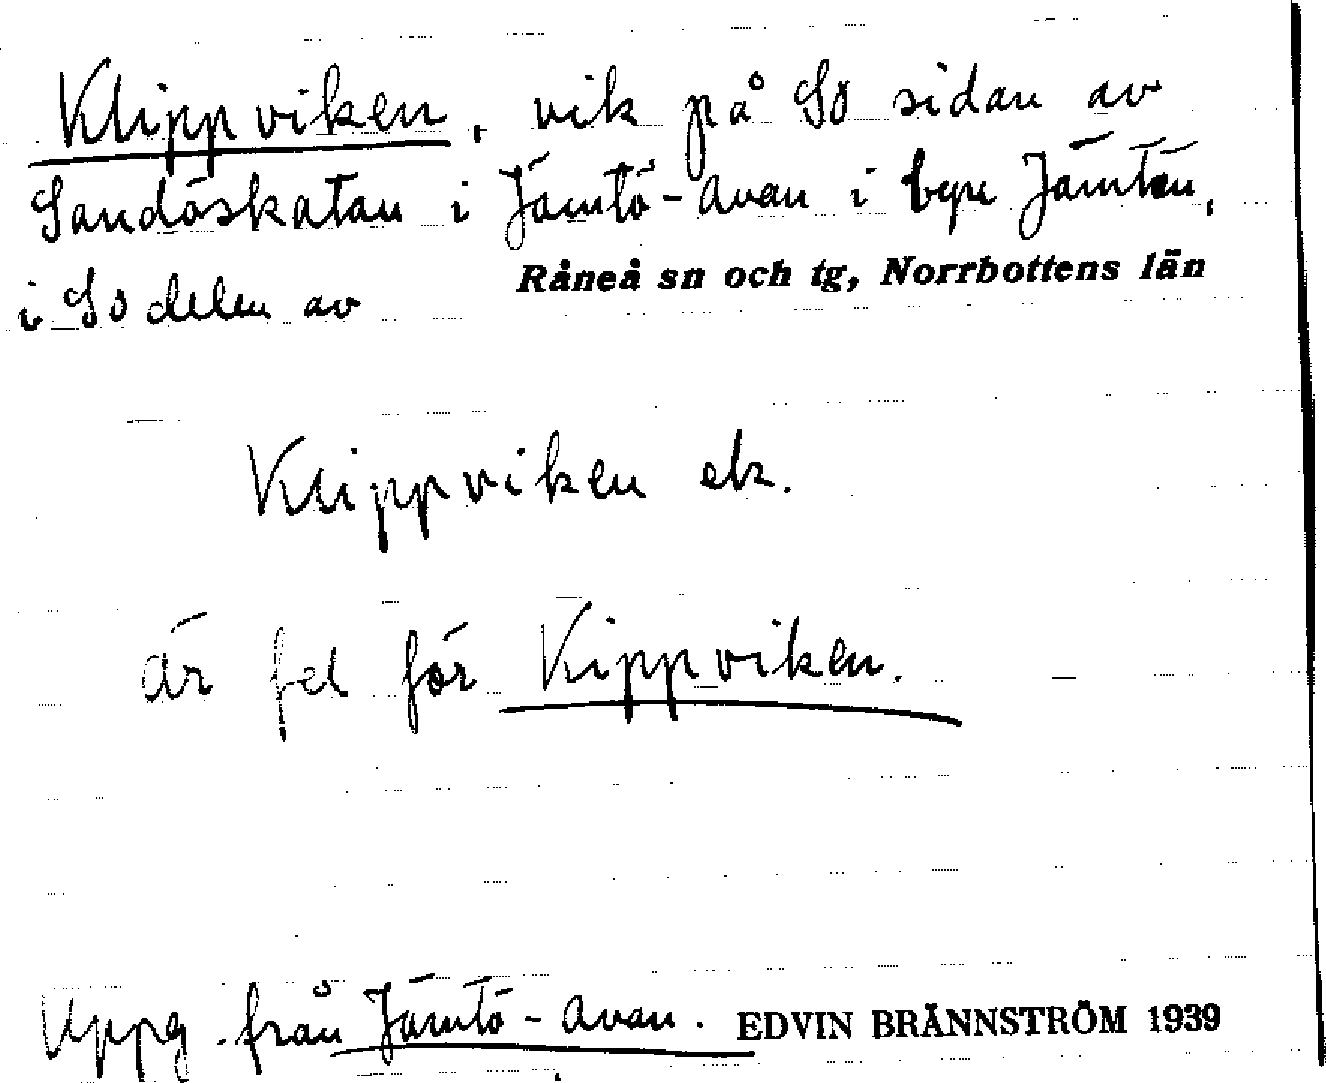 Klippviken, vik på SO sidan av
Sandöskatan i Jämtö-Avan i byn Jämtön,
i SO delen av Råneå sn och tg, Norrbottens län
Klippviken ek.
är fel för Kippviken.
Uppg. från Jämtö-Avan. EDVIN BRÄNNSTRÖM 1939